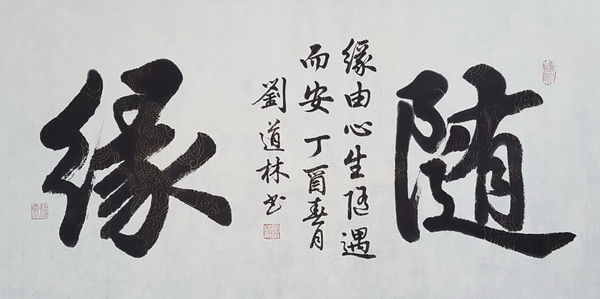 随
缘
缘由心生随遇
而安丁酉春月
劉道林书